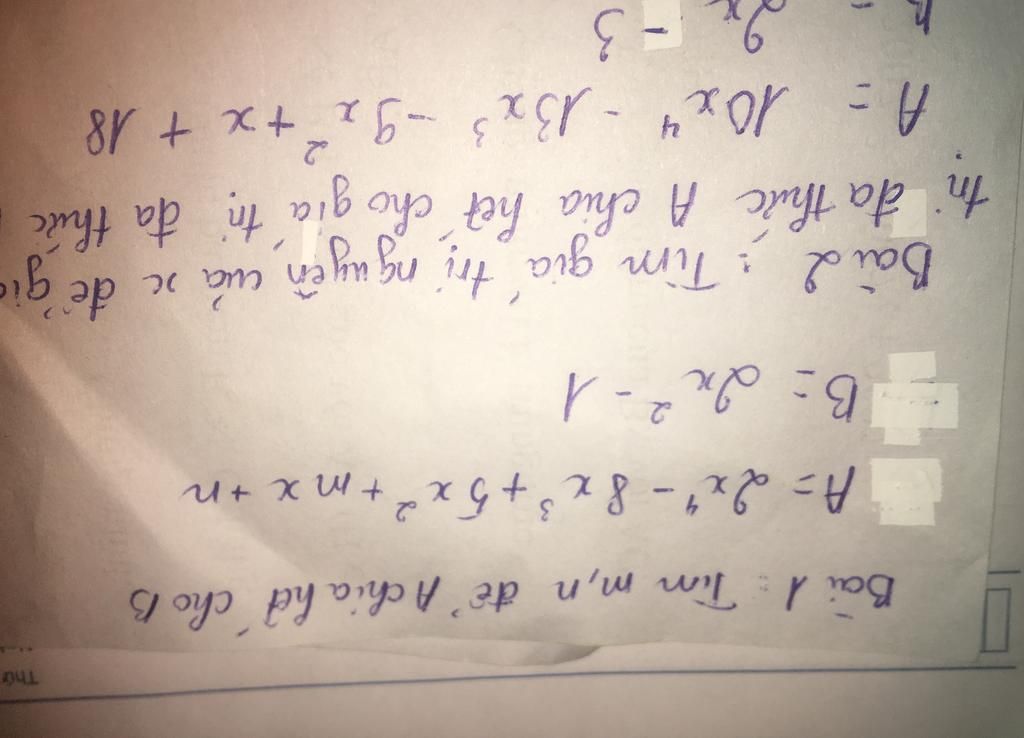 Thứ
Bài 1: Tìm m,n để A chia hết cho B
A = 2x⁴ - 8x³ + 5x² + mx + n
B = 2x² - 1
Bài 2: Tìm giá trị nguyên của x để giá
trị đa thức A chia hết cho giá trị đa thức
A = 10x⁴ - 13x³ - 9x² + x + 18
= 2x - 3